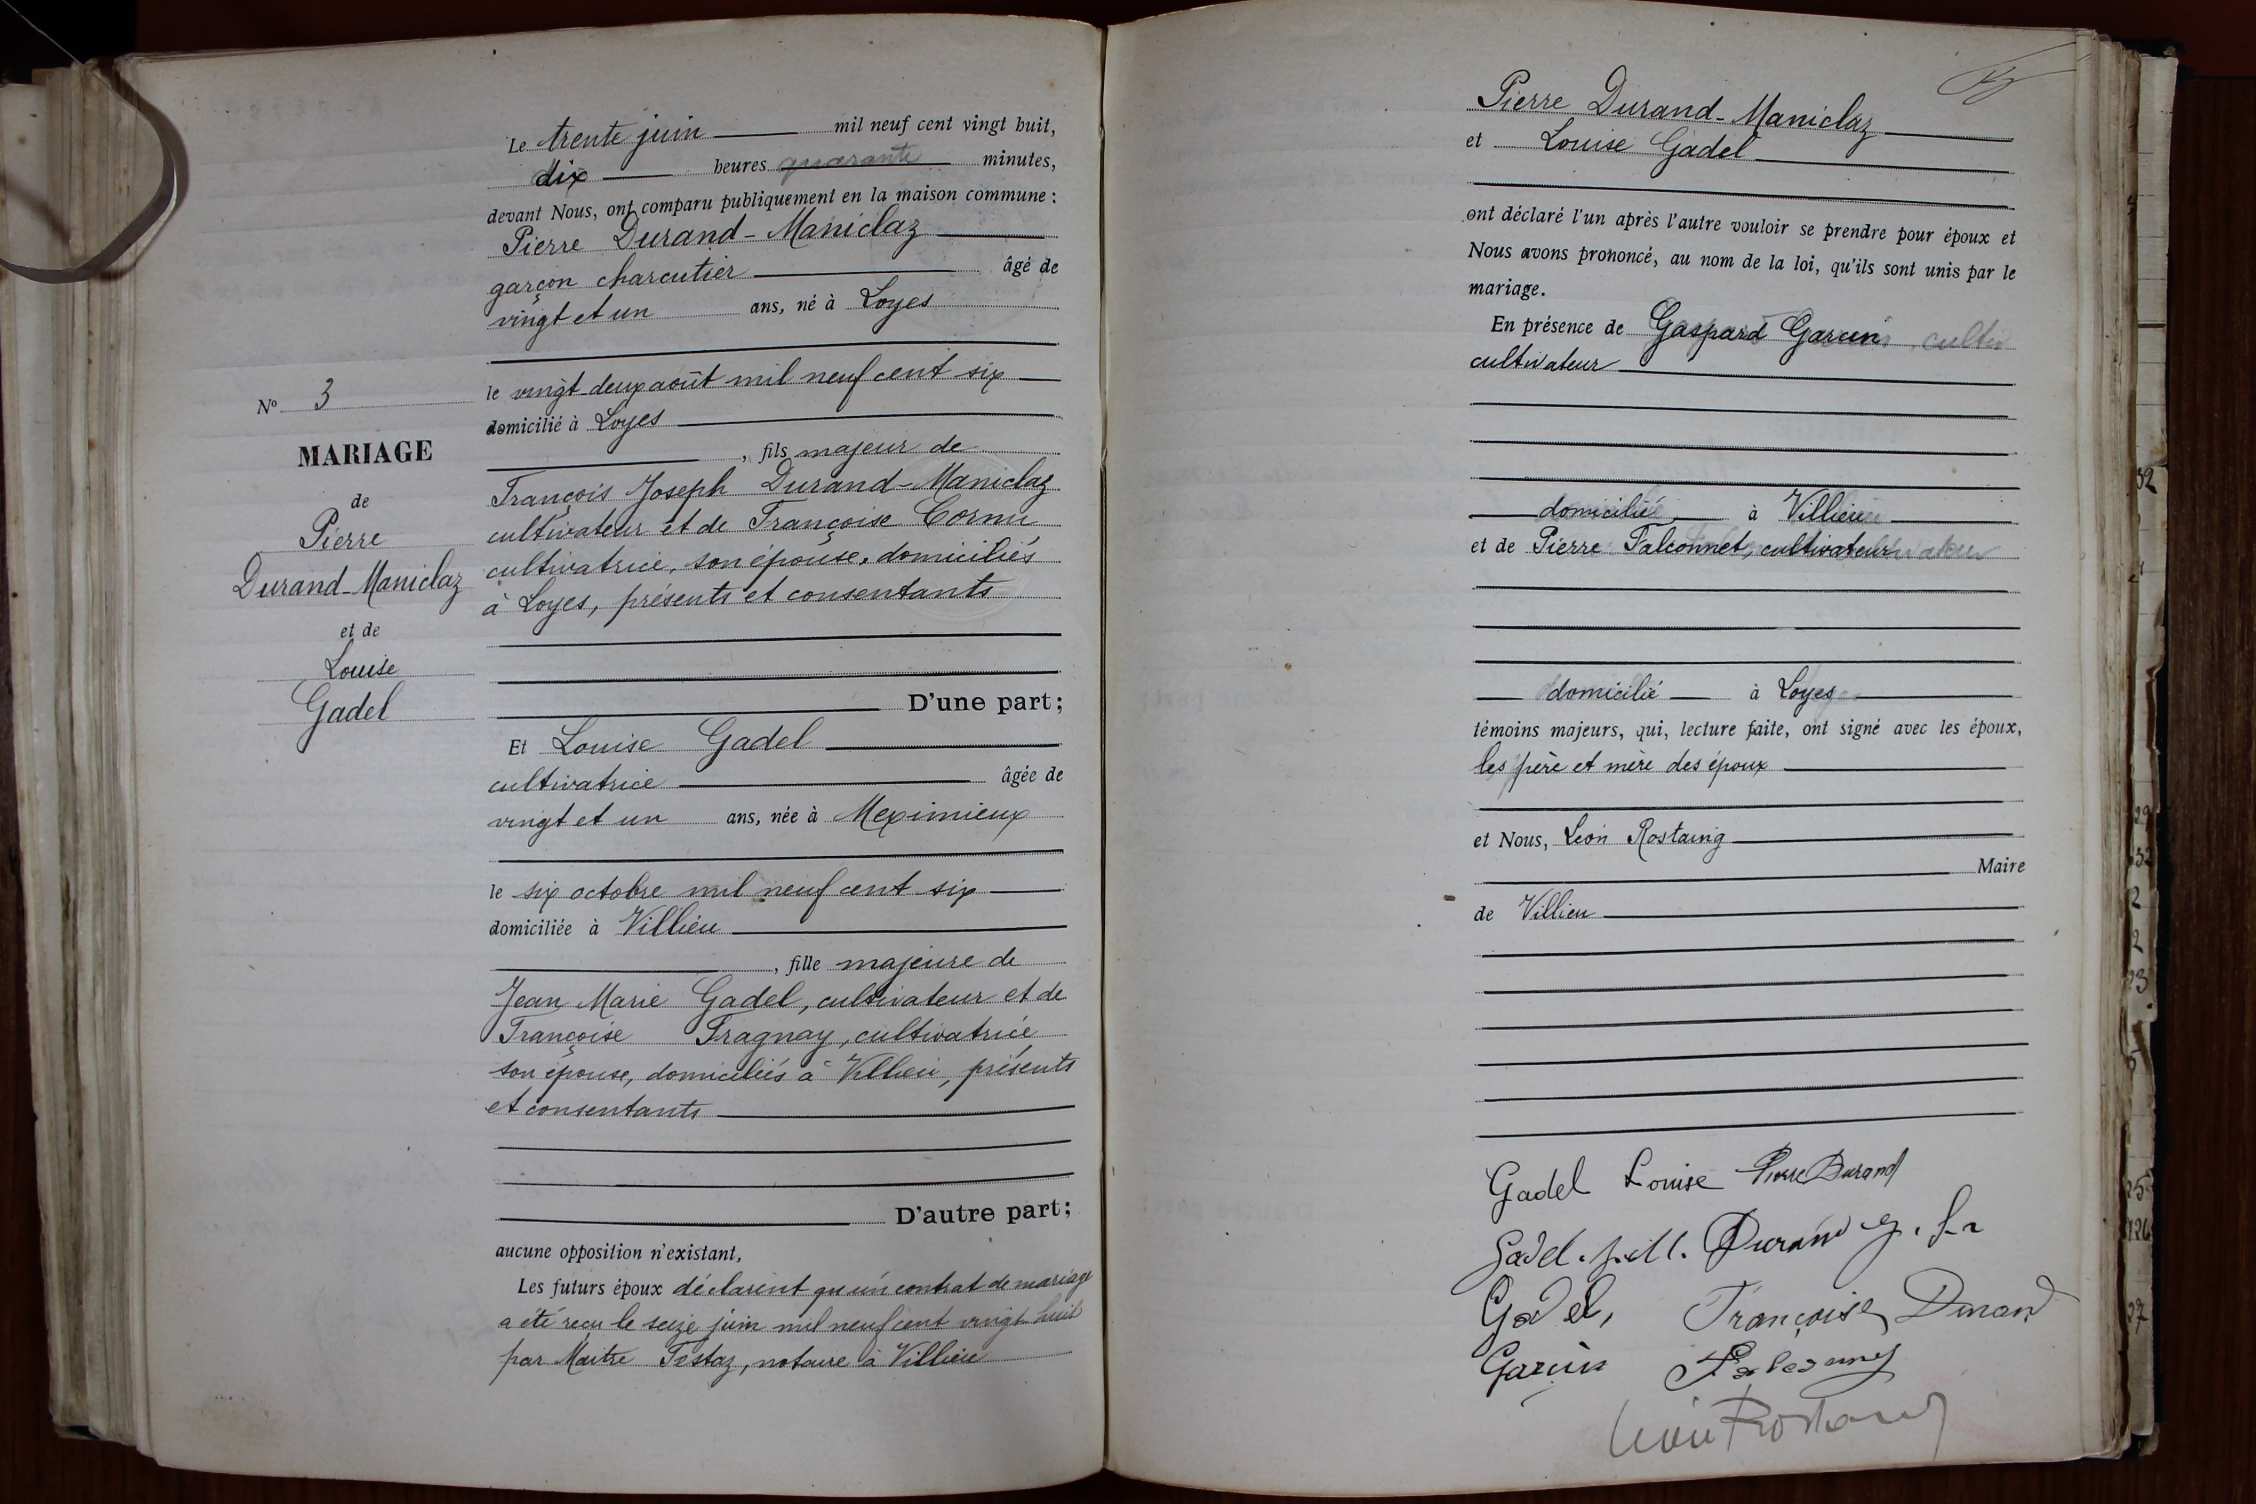 Le trente juin mil neuf cent vingt huit,
dix heures quarante minutes,
devant Nous, ont comparu publiquement en la maison commune :
Pierre Durand-Maniclaz
garçon charcutier âgé de
vingt et un ans, né à Loyes
le vingt deux août mil neuf cent six
domicilié à Loyes
, fils majeur de
François Joseph Durand-Maniclaz
cultivateur et de Françoise Cornu
cultivatrice, son épouse, domiciliés
à Loyes, présents et consentants
D'une part ;
Et Louise Gadel
cultivatrice âgée de
vingt et un ans, née à Meximieux
le six octobre mil neuf cent six
domiciliée à Villieu
, fille majeure de
Jean Marie Gadel, cultivateur et de
Françoise Fragnay, cultivatrice
son épouse, domiciliés à Villieu, présents
et consentants
D'autre part ;
aucune opposition n'existant,
Les futurs époux déclarent qu'un contrat de mariage
a été reçu le seize juin mil neuf cent vingt huit
par Maitre Testaz, notaire à Villieu
No 3
MARIAGE
de
Pierre
Durand-Maniclaz
et de
Louise
Gadel
Pierre Durand-Maniclaz
et Louise Gadel
ont déclaré l'un après l'autre vouloir se prendre pour époux et
Nous avons prononcé, au nom de la loi, qu'ils sont unis par le
mariage.
En présence de Gaspard Garcin
cultivateur
domicilié à Villieu
et de Pierre Falconnet, cultivateur
domicilié à Loyes
témoins majeurs, qui, lecture faite, ont signé avec les époux,
les père et mère des époux
et Nous, Léon Rostaing
Maire
de Villieu
Gadel Louise Pierre Durand
Gadel Durand
Gadel, Françoise Durand
Garcin Falconnet
Léon Rostaing